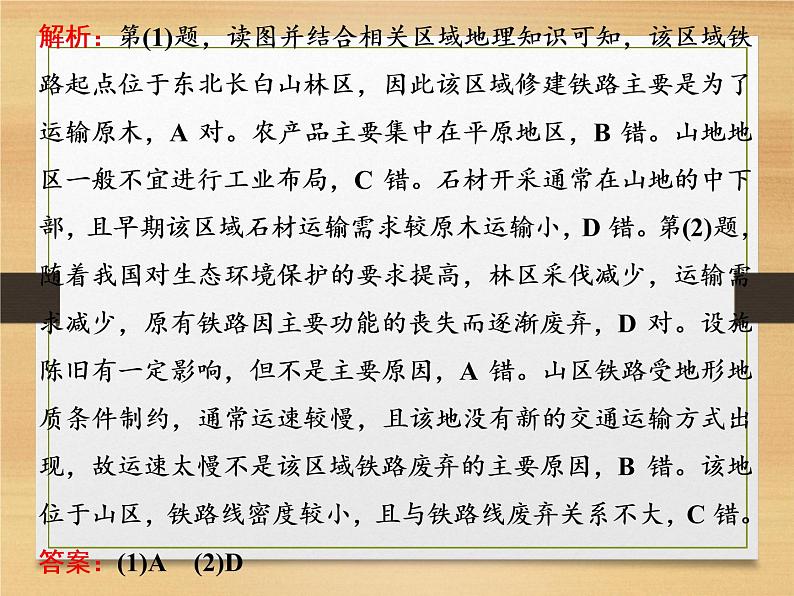 解析：第(1)题，读图并结合相关区域地理知识可知，该区域铁
路起点位于东北长白山林区，因此该区域修建铁路主要是为了
运输原木，A 对。农产品主要集中在平原地区，B 错。山地地
区一般不宜进行工业布局，C 错。石材开采通常在山地的中下
部，且早期该区域石材运输需求较原木运输小，D 错。第(2)题，
随着我国对生态环境保护的要求提高，林区采伐减少，运输需
求减少，原有铁路因主要功能的丧失而逐渐废弃，D 对。设施
陈旧有一定影响，但不是主要原因，A 错。山区铁路受地形地
质条件制约，通常运速较慢，且该地没有新的交通运输方式出
现，故运速太慢不是该区域铁路废弃的主要原因，B 错。该地
位于山区，铁路线密度较小，且与铁路线废弃关系不大，C 错。
答案：(1)A (2)D